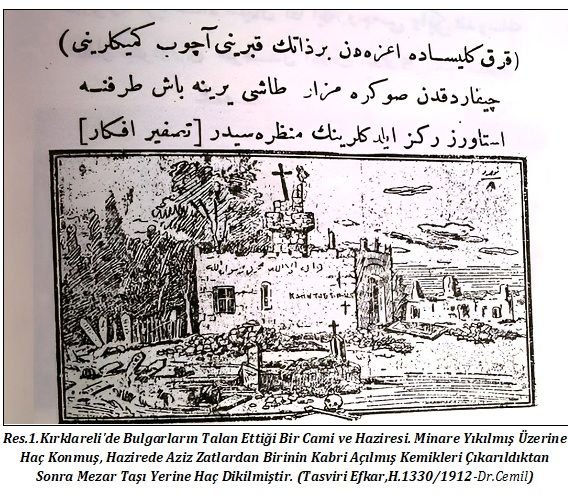 (قرق كليساده اعزه دن برذاتك قبرينى آچوب كميكلرينى)
چيقاردقدن صوكره مزار طاشى يرينه باش طرفنه
استاورز ركز ايلدكلرينك منظره سيدر [افكار]
لا اله الا الله محمد رسول الله
Res.1.Kırklareli'de Bulgarların Talan Ettiği Bir Cami ve Haziresi. Minare Yıkılmış Üzerine
Haç Konmuş, Hazirede Aziz Zatlardan Birinin Kabri Açılmış Kemikleri Çıkarıldıktan
Sonra Mezar Taşı Yerine Haç Dikilmiştir. (Tasviri Efkar,H.1330/1912-Dr.Cemil)